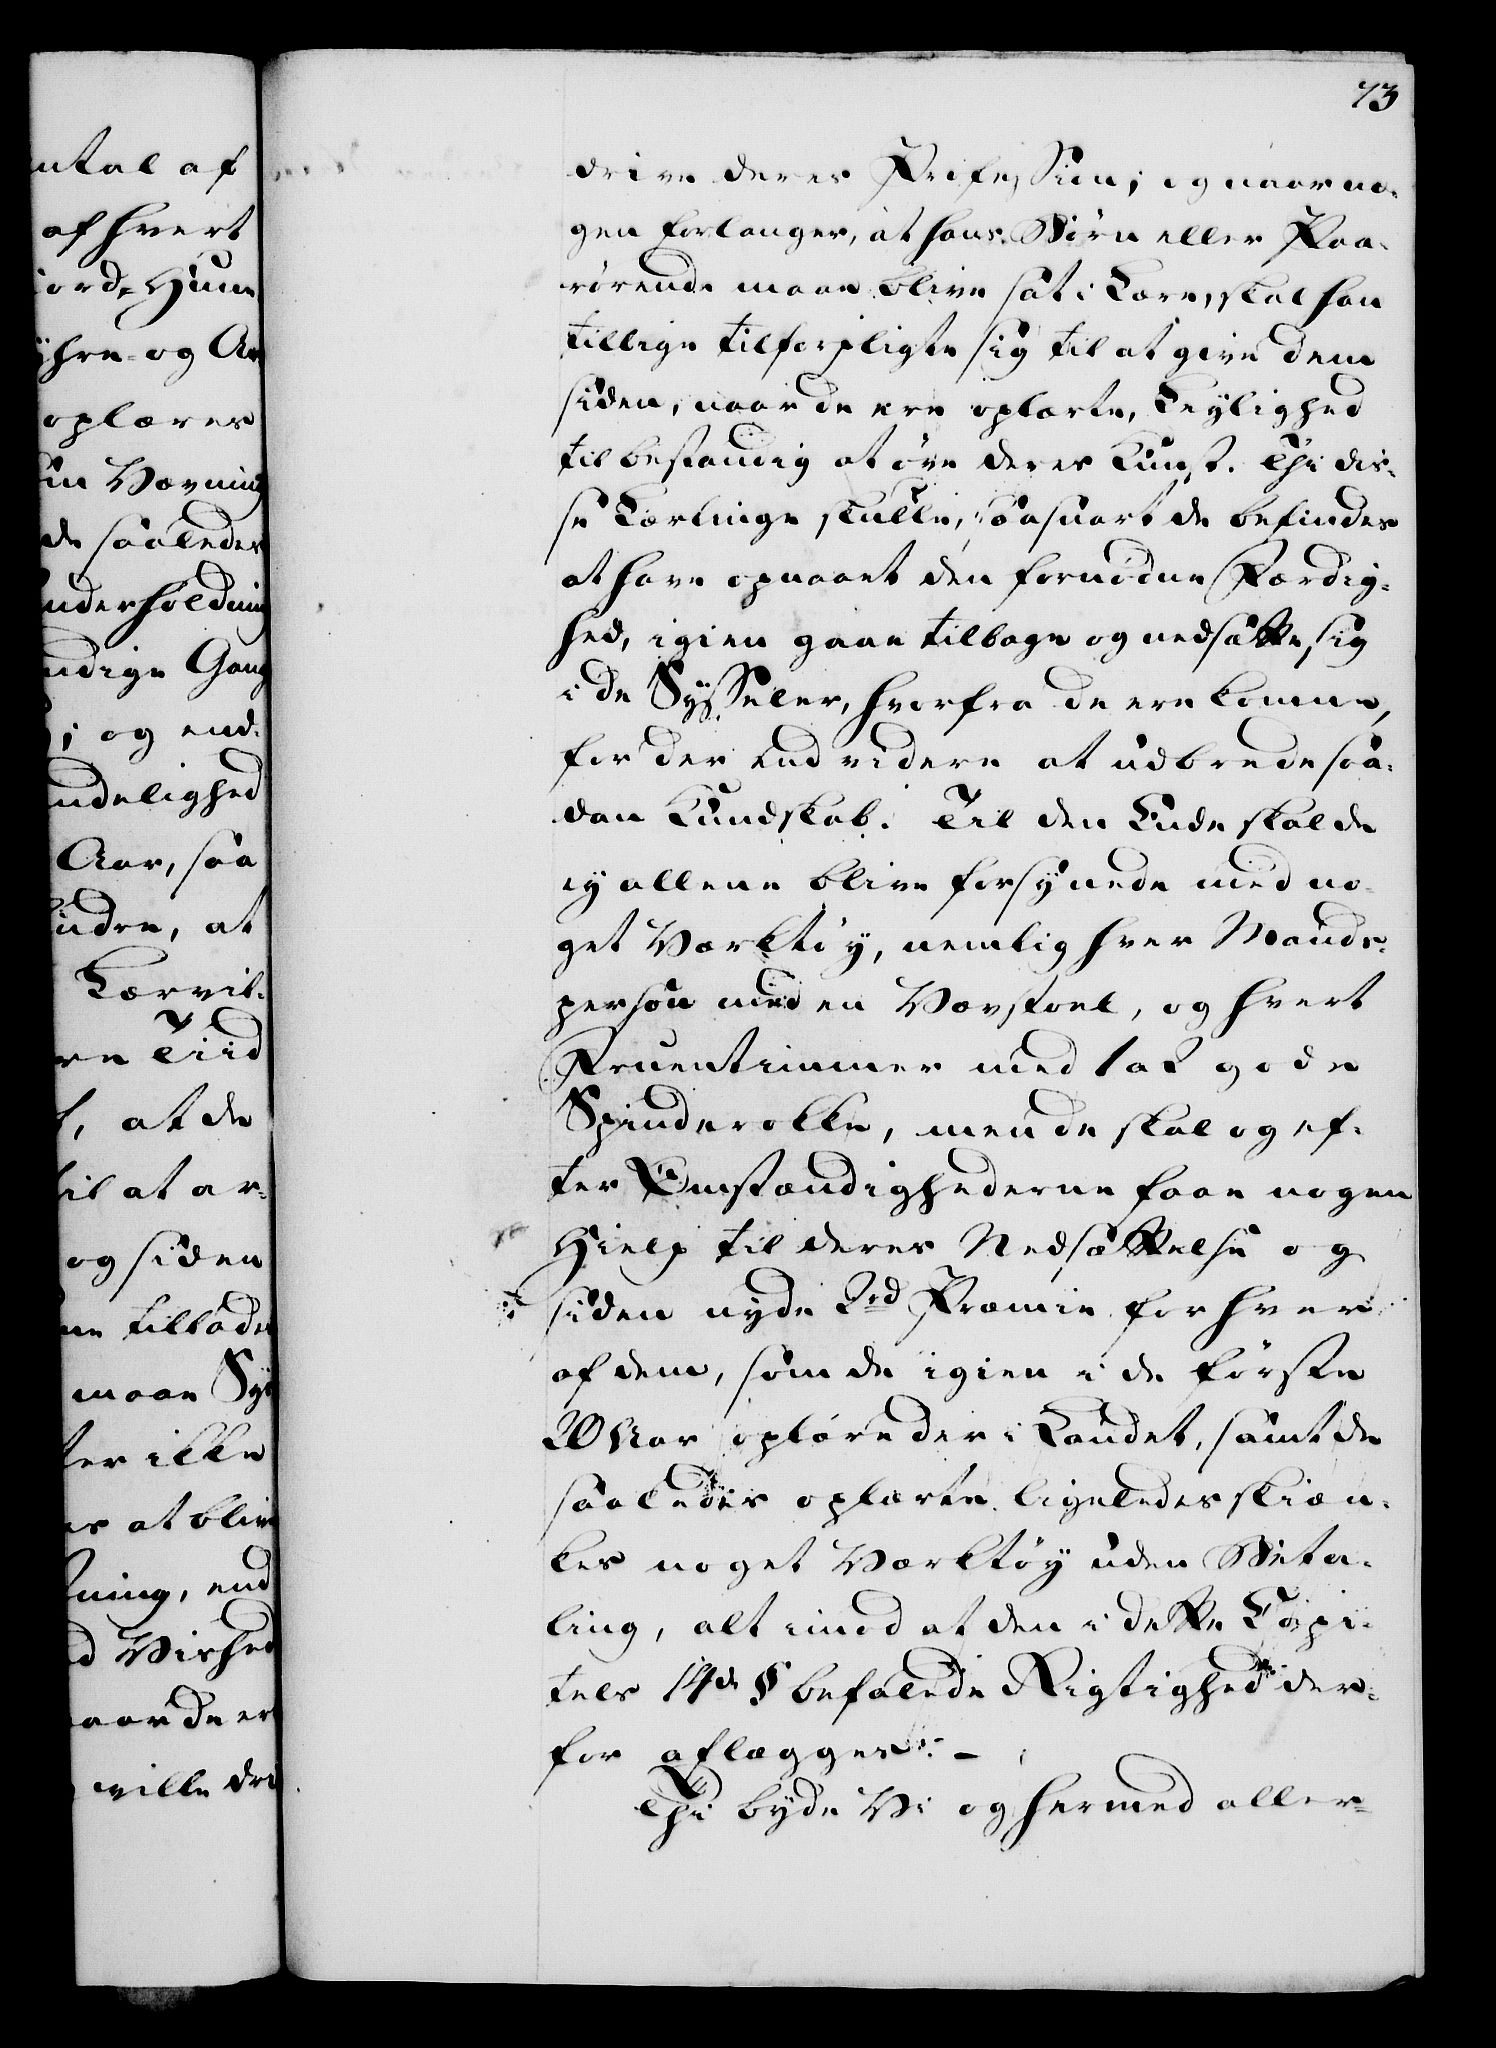 ntal af
af hvert
iord, Hune
ÿhre- og Ar
oplæres
un Vævning
de saaledes
nderholdning
ndige Gang
; og end-
ndelighed
Aar, saa
indre, at
Lærvil-
re Tiid
, at de
til at ar-
og siden
ne tilbøde
maae Sys
ter ikke
es at blive
ning, end
d Vished
aar de er
ville dri
73
drive deres Profession; og naar no-
gen forlanger, at hans Börn eller Paa-
rörende maae blive sat i Lære, skal han
tillige tilforpligte sig til at give dem
siden, naar de ere oplærte, Leylighed
til bestandig at øve deres Kunst. Thi dis-
se Lærlinge skulle, saasnart de befindes
at have opnaaet den fornödne Færdig-
hed, igien gaae tilbage og nedsætte sig
i de Sÿsseler, hvorfra de ere komne,
for der end videre at udbrede saa-
dan Kundskab. Til den Ende skal de
ey allene blive forsÿnede med no-
get Værktöÿ, nemlig hver Mands-
person med en Vævstoel, og hvert
Fruentimmer med 1 à 2 gode
Spinderokke, men de skal og ef-
ter Omstændighederne faae nogen
Hielp til deres Nedsættelse og
siden nyde 2rd Præmie for hver
af dem, som de igien i de förste
20 Aar oplære der i Landet, samt de
saaledes oplærte ligeledes skiæn-
kes noget Værktöÿ uden Beta-
ling, alt imod at den i dette Capi-
tels 14de § befalede Rigtighed der-
for aflægges. -
Thi byde Vi og hermed aller-